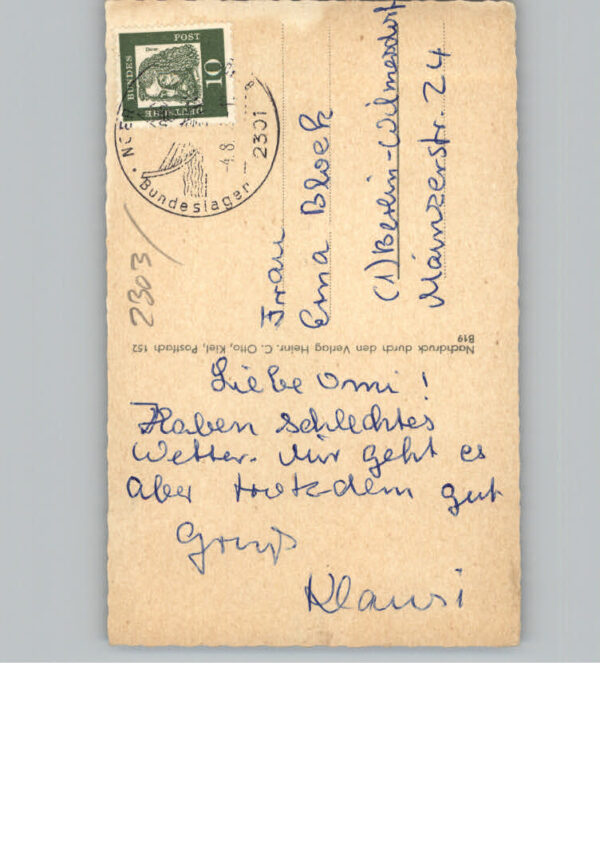 Liebe Omi!
Haben schlechtes
Wetter. Mir geht es
aber trotzdem gut
Gruß
Klausi
Frau
Erna Block
(1) Berlin-Wilmersdorf
Mainzerstr. 24
Nachdruck durch den Verlag Heinr. C. Otto, Kiel, Postfach 152
B19
2303/
DEUTSCHE
BUNDES
POST
10
Dürer
-4.8.
2301
Bundeslager